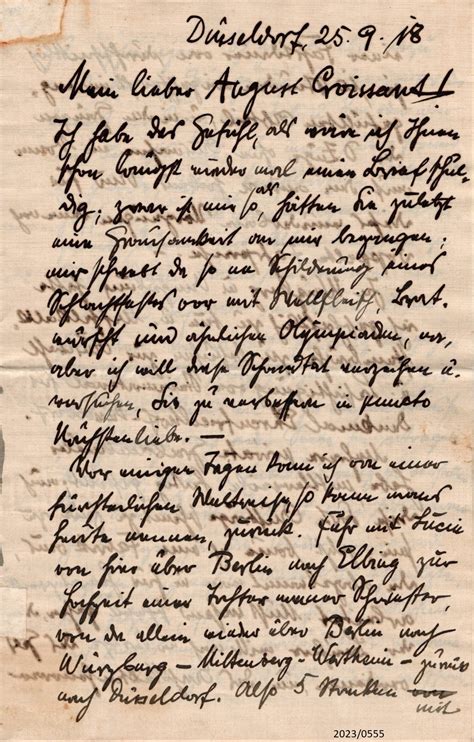 Düsseldorf, 25. 9. 18
Mein lieber August Croissant!
Ich habe das Gefühl, als wäre ich Ihnen
schon längst wieder mal einen Brief schul-
dig; zwar ist mir so, als hätten Sie zuletzt
eine Grausamkeit an mir begangen;
mir schwebt da so ne Schilderung eines
Schlachtfestes vor mit Wellfleisch, Brat-
würscht und ähnlichen Olympiaden, na,
aber ich will diese Schandtat verzeihen u.
versuchen, Sie zu verbessern in puncto
Nächstenliebe. —
Vor einigen Tagen kam ich von einer
fürchterlichen Weltreise, so kann mans
heute nennen, zurück. Fuhr mit Lucie
von hier über Berlin nach Elbing zur
Hochzeit einer Tochter meiner Schwester,
von da allein wieder über Berlin nach
Würzburg – Miltenberg – Wertheim – zurück
nach Düsseldorf. Also 5 Strecken
mit
2023/0555